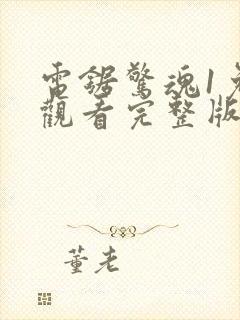 電鋸驚魂1免
觀看完整版
董老